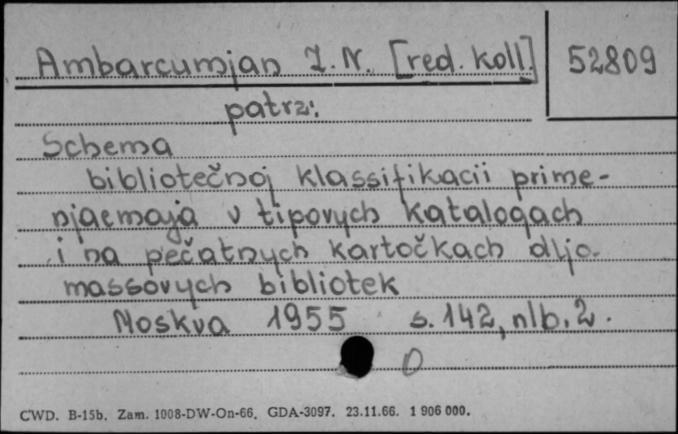 Ambarcumjan Z. N. [red. koll.] 52809
patrz:
Schema
bibliotečnoj klassifikacii prime-
njaemaja v tipovych katalogach
i na pečatnych kartočkach dlja
massovych bibliotek
Moskva 1955 s. 142, nlb. 2.
0
CWD. B-15b. Zam. 1008-DW-On-66. GDA-3097. 23.11.66. 1 906 000.